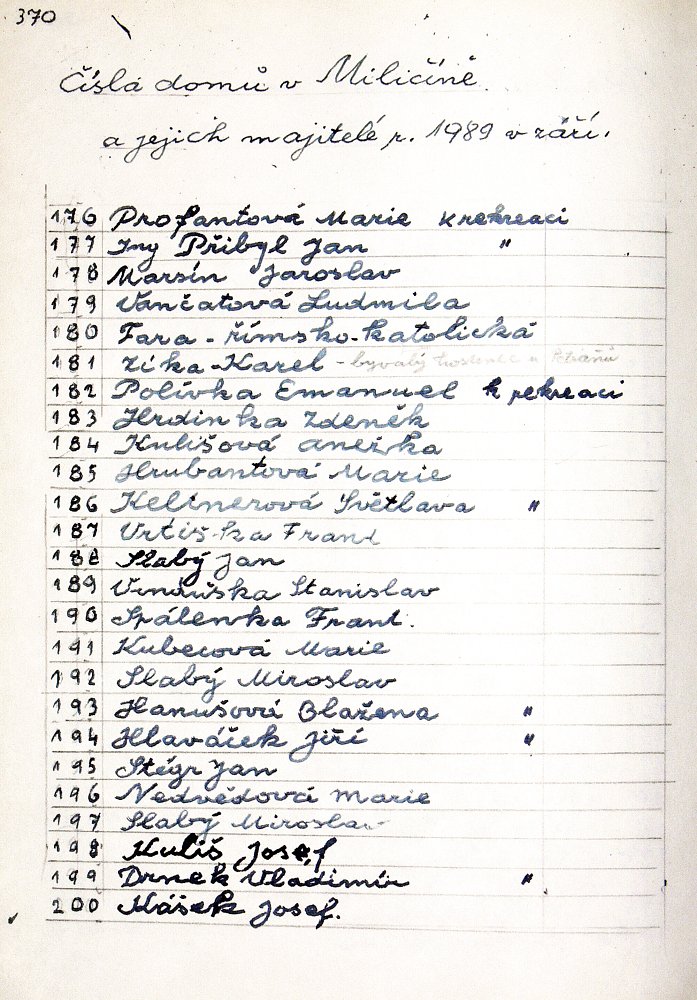 370
Čísla domů v Miličíně
a jejich majitelé r. 1989 v září.
176 Profantová Marie k rekreaci
177 Ing Přibyl Jan "
178 Marsín Jaroslav
179 Vančatová Ludmila
180 Fara - římsko-katolická
181 Zíka-Karel - bývalý hostinec u
182 Polívka Emanuel k rekreaci
183 Hrdinka Zdeněk
184 Kulišová Anežka
185 Hrubantová Marie
186 Kellnerová Světlava "
187 Vrtiška Frant
188 Slabý Jan
189 Vinduška Stanislav
190 Spálenka Frant.
191 Kubecová Marie
192 Slabý Miroslav
193 Hanušová Blažena "
194 Hlaváček Jiří "
195 Stégr Jan
196 Nedvědová Marie
197 Slabý Miroslav
198 Kuliš Josef
199 Drnek Vladimír "
200 Kášek Josef.